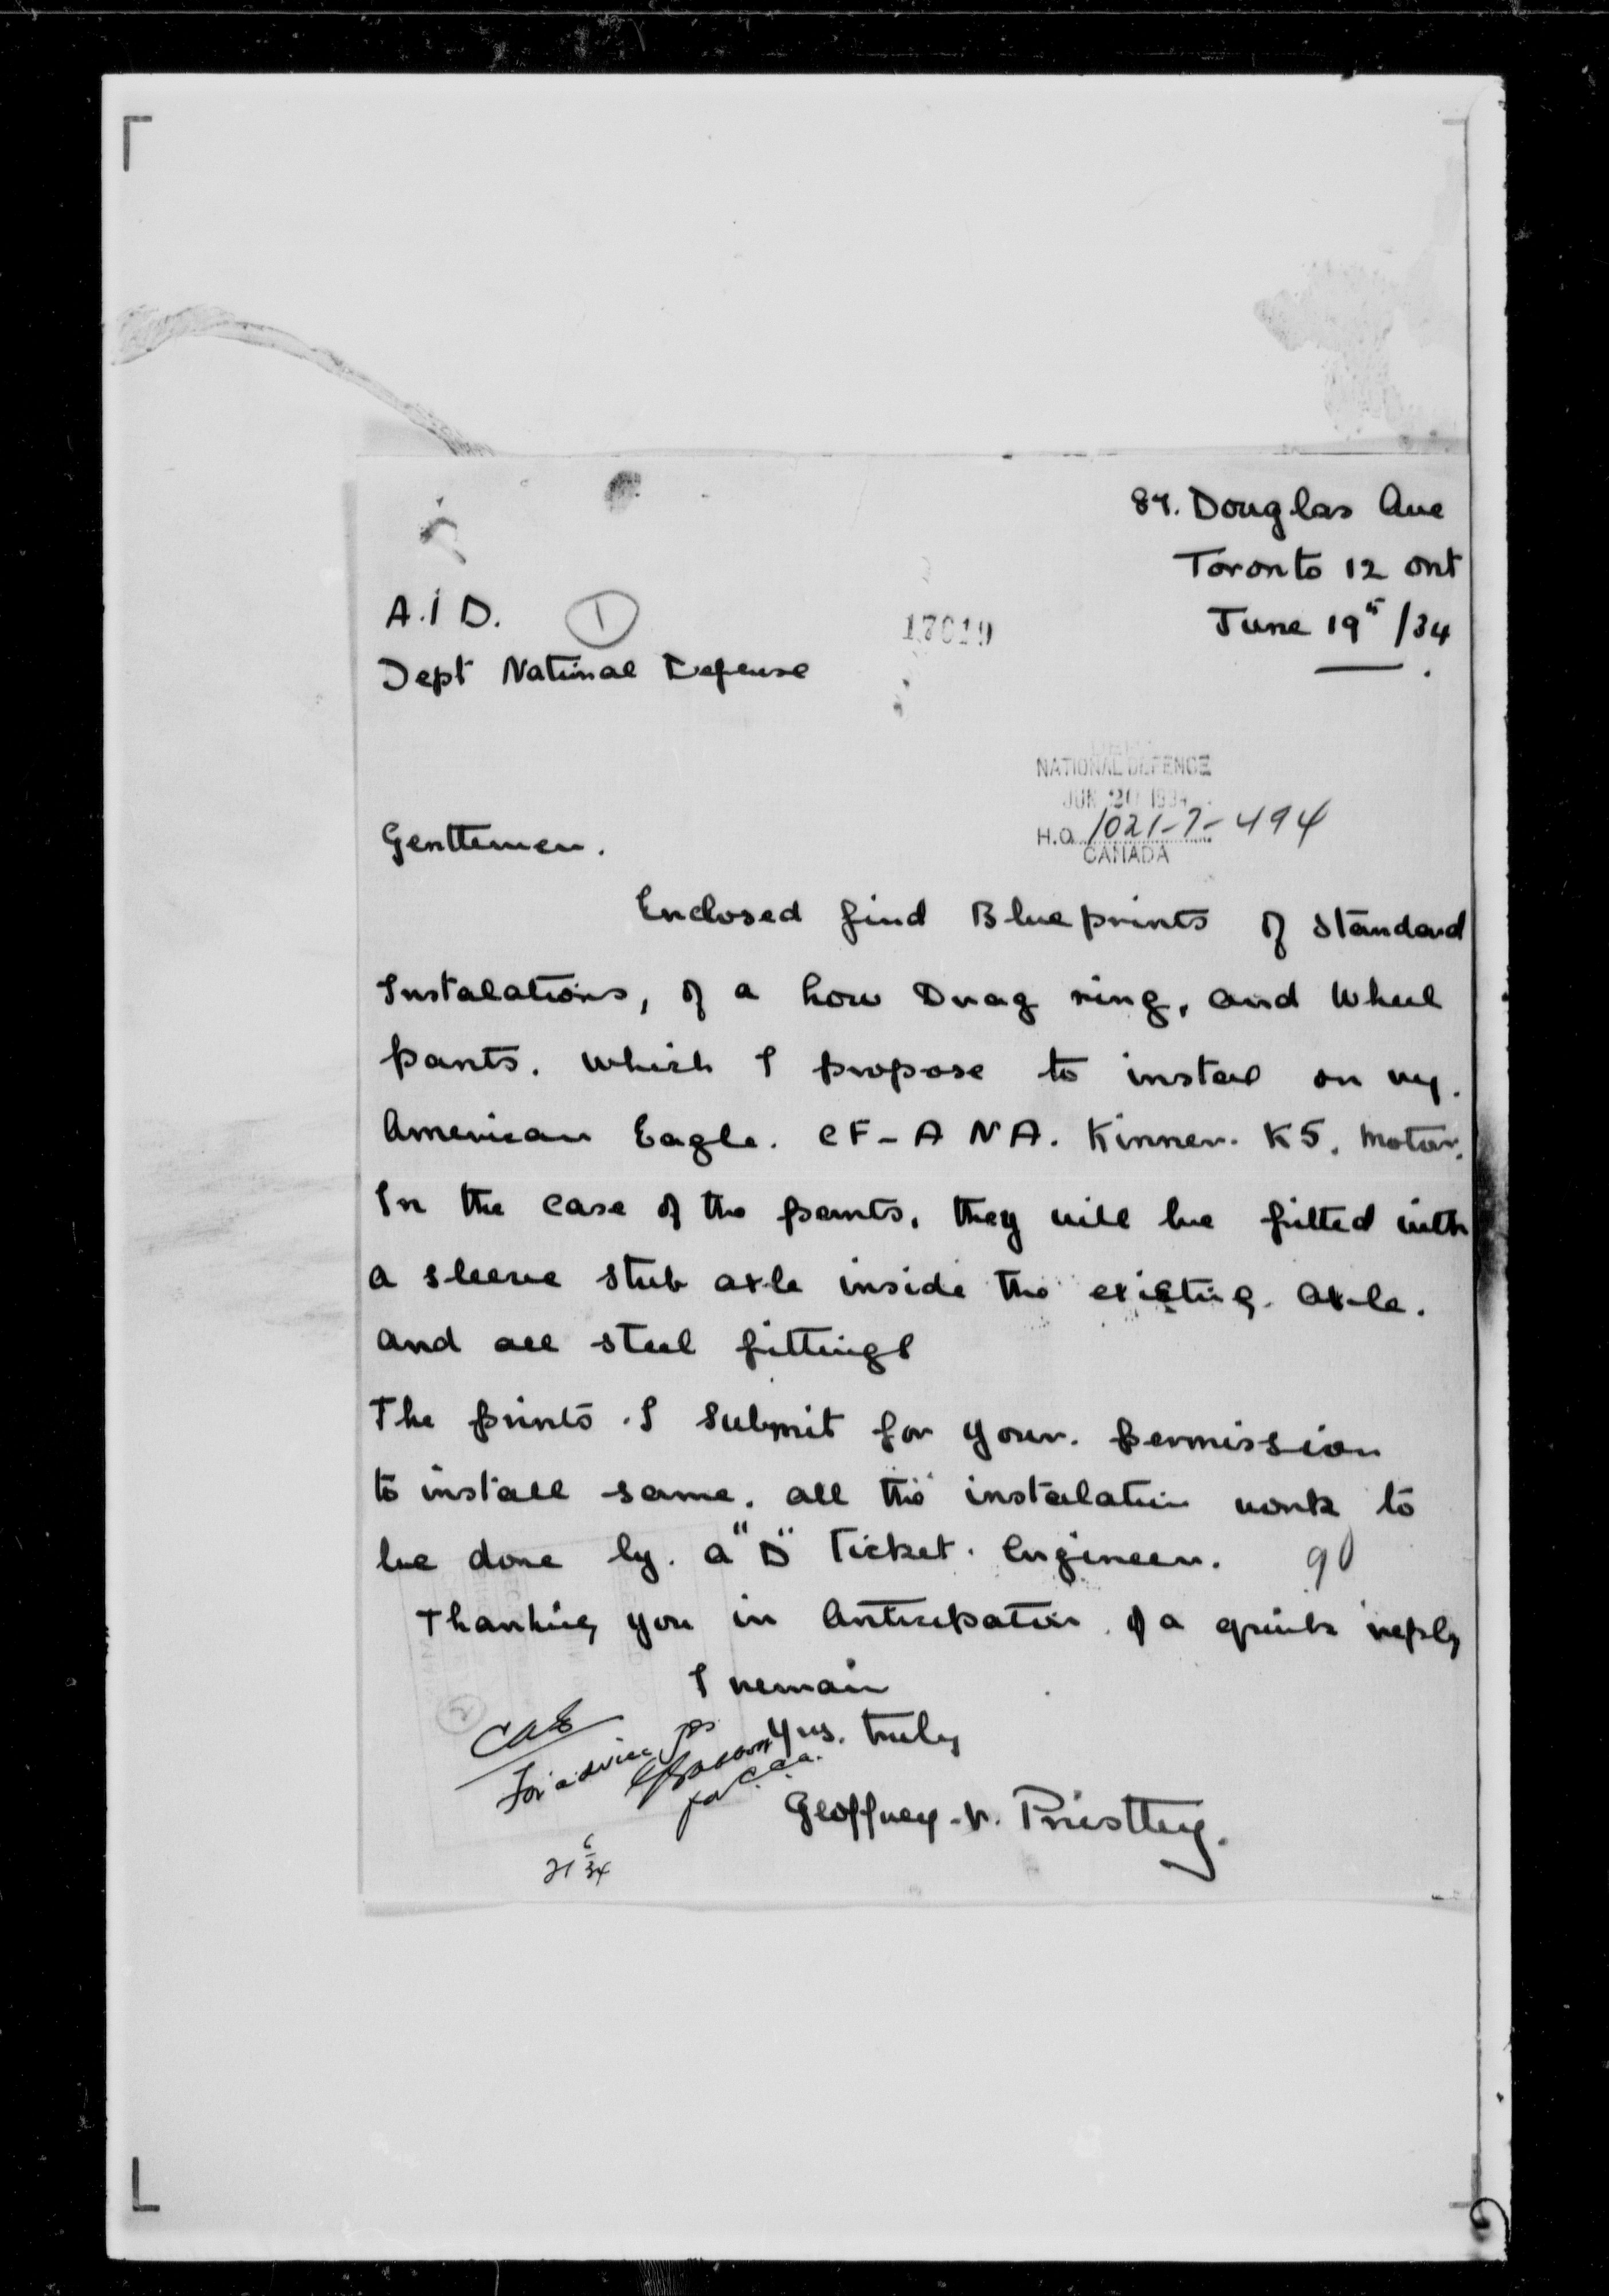 87. Douglas Ave
Toronto 12 Ont
June 19th /34
A.I D. 1
17619
Dept National Defense
NATIONAL DEFENCE
JUN 20 1934
H.Q. 1021-7-494
CANADA
Gentlemen.
Enclosed find Blueprints of Standard
Instalations, of a Low Drag ring, and Wheel
pants. which I propose to instal on my.
American Eagle. CF-A N A. Kinner. K5. Motor.
In the case of the pants. they will be fitted with
a sleeve stub axle inside the existing. axle.
and all steel fittings
The prints I submit for your. permission
to install same. all the instalation work to
be done by. a "D" Ticket. Engineer. 90
Thanking you in Anticipation of a quick reply
I remain
Yrs. truly
Geoffrey
Priestley.
CAE
For advice
for C.C.A.
21 6/34
2